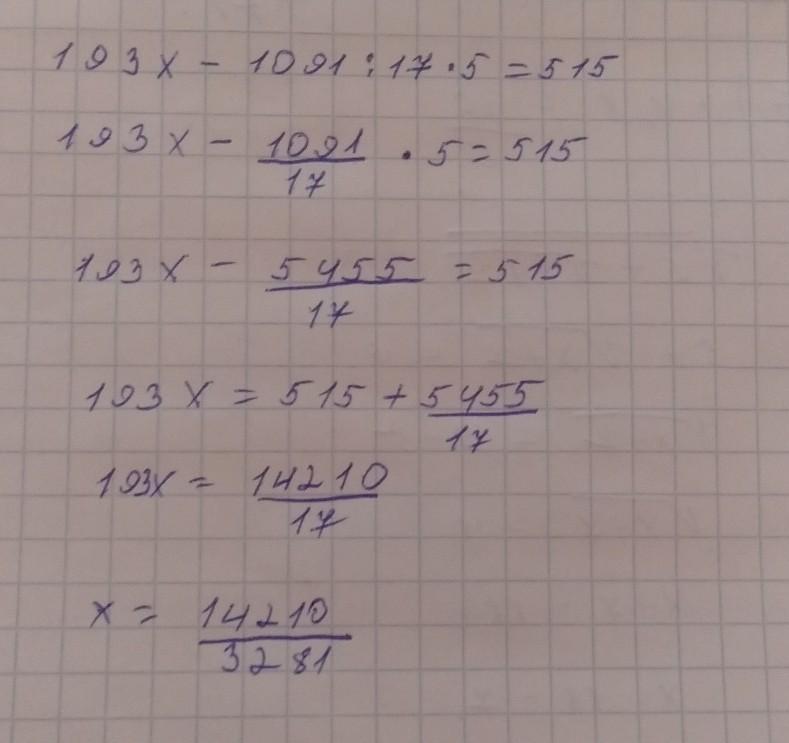 193x - 1091 : 17 · 5 = 515
193x - 1091/17 · 5 = 515
193x - 5455/17 = 515
193x = 515 + 5455/17
193x = 14210/17
x = 14210/3281